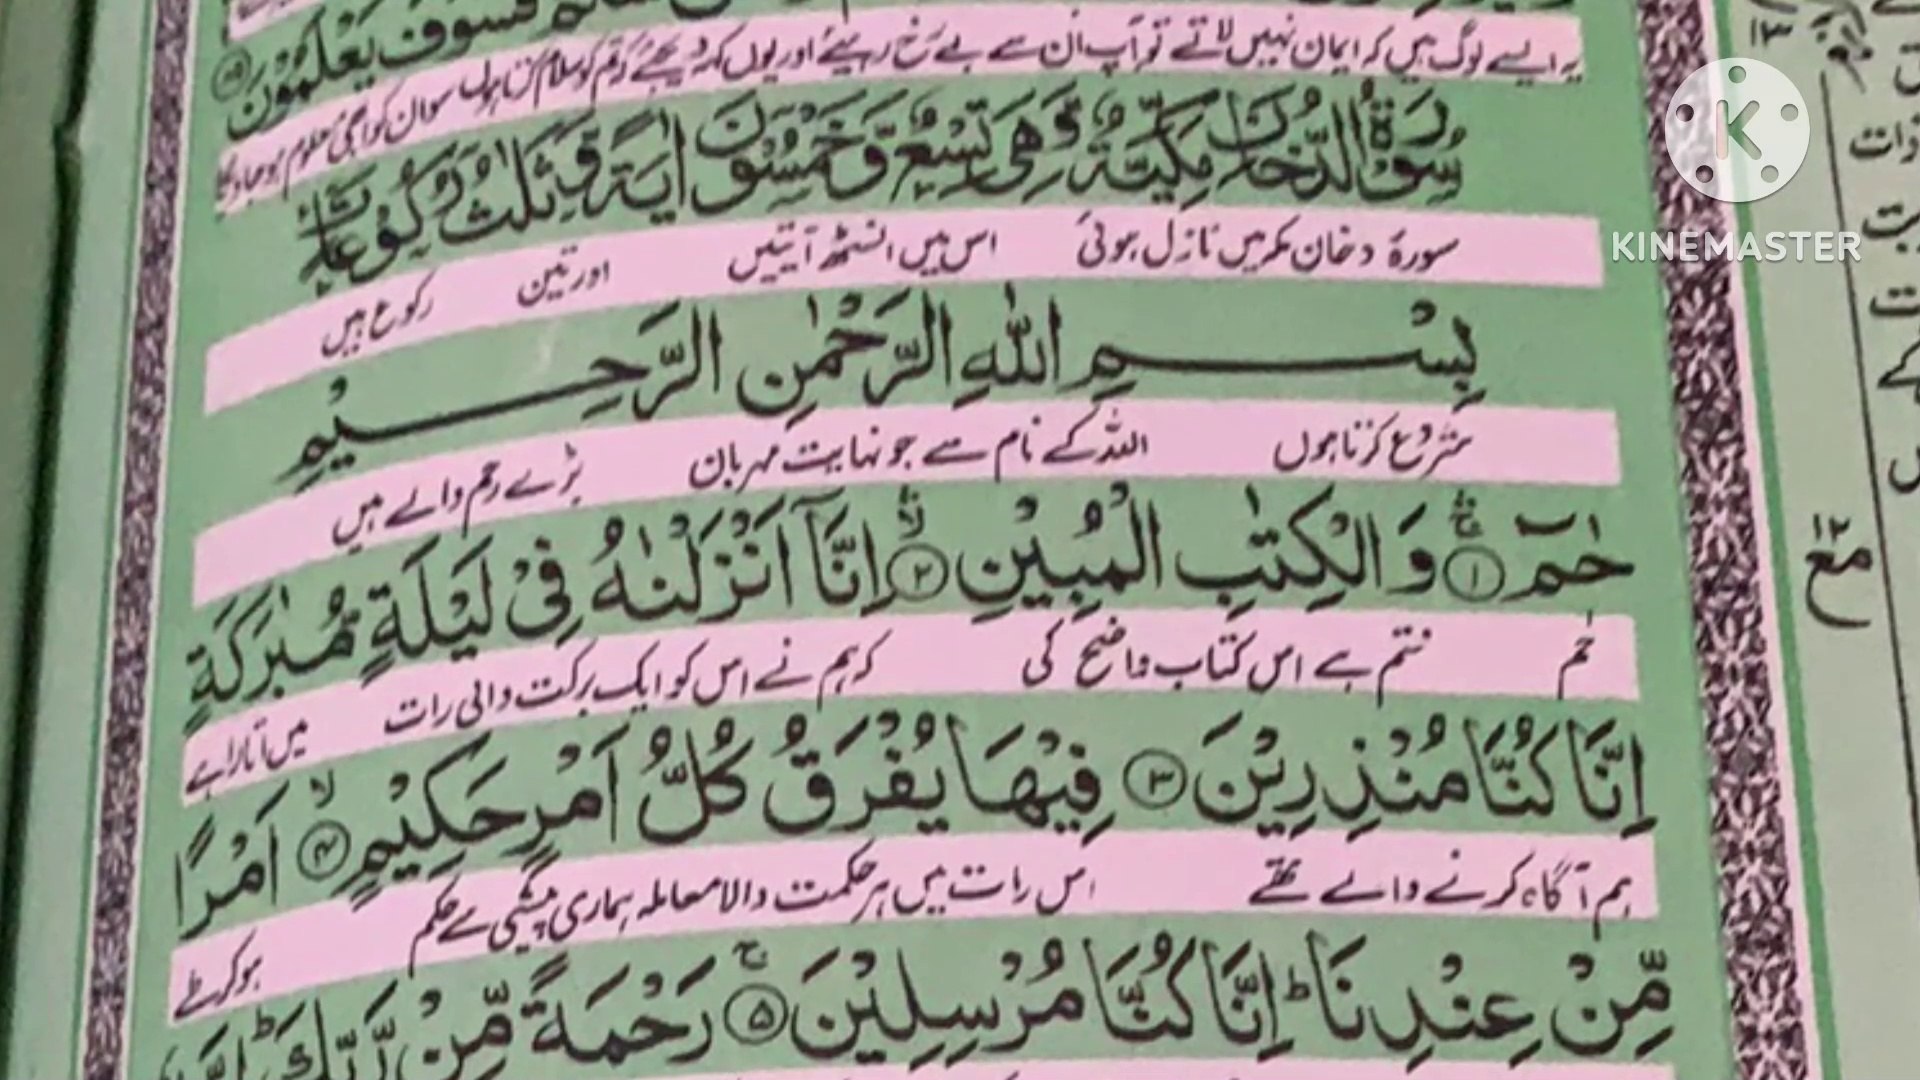 فسوف يعلمون ۸۹
یہ ایسے لوگ ہیں کہ ایمان نہیں لاتے تو آپ ان سے بے رخ رہیئے اور یوں کہہ دیجئے کہ تم کو سلام کرتا ہوں سو ان کو ابھی معلوم ہو جاویگا
سُوْرَةُ الدُّخَانِ مَكِّيَّةٌ وَّهِيَ تِسْعٌ وَّخَمْسُوْنَ اٰيَةً وَّثَلٰثُ رُكُوْعَاتٍ
سورۂ دخان مکہ میں نازل ہوئی اس میں انسٹھ آیتیں اور تین رکوع ہیں
بِسْمِ اللّٰهِ الرَّحْمٰنِ الرَّحِيْمِ
شروع کرتا ہوں اللہ کے نام سے جو نہایت مہربان بڑے رحم والے ہیں
حٰمٓ ۚ۝۱ وَ الْكِتٰبِ الْمُبِيْنِ ۙ۝۲ اِنَّاۤ اَنْزَلْنٰهُ فِيْ لَيْلَةٍ مُّبٰرَكَةٍ
حٰم قسم ہے اس کتاب واضح کی کہ ہم نے اس کو ایک برکت والی رات میں اتارا ہے
اِنَّا كُنَّا مُنْذِرِيْنَ ۝۳ فِيْهَا يُفْرَقُ كُلُّ اَمْرٍ حَكِيْمٍ ۙ۝۴ اَمْرًا
ہم آگاہ کرنے والے تھے اس رات میں ہر حکمت والا معاملہ ہماری پیشی سے حکم ہو کر طے
مِّنْ عِنْدِنَا ؕ اِنَّا كُنَّا مُرْسِلِيْنَ ۚ۝۵ رَحْمَةً مِّنْ رَّبِّكَ ؕ
۱۳
۱۲
مع
ع
KINEMASTER